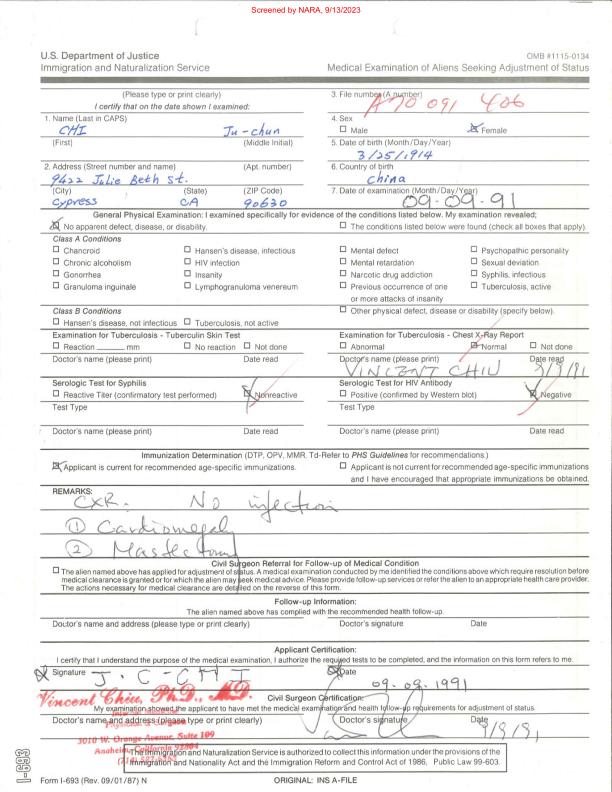 Screened by NARA, 9/13/2023
U.S. Department of Justice
Immigration and Naturalization Service
OMB #1115-0134
Medical Examination of Aliens Seeking Adjustment of Status
(Please type or print clearly)
I certify that on the date shown I examined:
3. File number (A number)
A70 091 406
1. Name (Last in CAPS)
CHI Ju-chun
(First) (Middle Initial)
4. Sex
☐ Male ☒ Female
5. Date of birth (Month/Day/Year)
3/25/1914
2. Address (Street number and name) (Apt. number)
9422 Julie Beth St.
6. Country of birth
China
(City) (State) (ZIP Code)
Cypress CA 90630
7. Date of examination (Month/Day/Year)
09-09-91
General Physical Examination: I examined specifically for evidence of the conditions listed below. My examination revealed;
☒ No apparent defect, disease, or disability. ☐ The conditions listed below were found (check all boxes that apply).
Class A Conditions
☐ Chancroid ☐ Hansen's disease, infectious ☐ Mental defect ☐ Psychopathic personality
☐ Chronic alcoholism ☐ HIV infection ☐ Mental retardation ☐ Sexual deviation
☐ Gonorrhea ☐ Insanity ☐ Narcotic drug addiction ☐ Syphilis, infectious
☐ Granuloma inguinale ☐ Lymphogranuloma venereum ☐ Previous occurrence of one ☐ Tuberculosis, active
or more attacks of insanity
Class B Conditions ☐ Other physical defect, disease or disability (specify below).
☐ Hansen's disease, not infectious ☐ Tuberculosis, not active
Examination for Tuberculosis - Tuberculin Skin Test
☐ Reaction ______ mm ☐ No reaction ☐ Not done
Doctor's name (please print) Date read
Examination for Tuberculosis - Chest X-Ray Report
☐ Abnormal ☒ Normal ☐ Not done
Doctor's name (please print) Date read
VINCENT CHIU 9/9/91
Serologic Test for Syphilis
☐ Reactive Titer (confirmatory test performed) ☒ Nonreactive
Test Type
Doctor's name (please print) Date read
Serologic Test for HIV Antibody
☐ Positive (confirmed by Western blot) ☒ Negative
Test Type
Doctor's name (please print) Date read
Immunization Determination (DTP, OPV, MMR, Td-Refer to PHS Guidelines for recommendations.)
☒ Applicant is current for recommended age-specific immunizations. ☐ Applicant is not current for recommended age-specific immunizations
and I have encouraged that appropriate immunizations be obtained.
REMARKS:
CXR. No infection
① Cardiomegaly
② Mastectomy
Civil Surgeon Referral for Follow-up of Medical Condition
☐ The alien named above has applied for adjustment of status. A medical examination conducted by me identified the conditions above which require resolution before
medical clearance is granted or for which the alien may seek medical advice. Please provide follow-up services or refer the alien to an appropriate health care provider.
The actions necessary for medical clearance are detailed on the reverse of this form.
Follow-up Information:
The alien named above has complied with the recommended health follow-up.
Doctor's name and address (please type or print clearly) Doctor's signature Date
Applicant Certification:
I certify that I understand the purpose of the medical examination, I authorize the required tests to be completed, and the information on this form refers to me.
Signature Date
J. C - CHI 09.09.1991
Vincent Chiu, Ph.D., M.D.
Civil Surgeon Certification:
My examination showed the applicant to have met the medical examination and health follow-up requirements for adjustment of status.
Doctor's name and address (please type or print clearly) Doctor's signature Date
9/9/91
3010 W. Orange Avenue, Suite 109
Anaheim, California 92804
The Immigration and Naturalization Service is authorized to collect this information under the provisions of the
Immigration and Nationality Act and the Immigration Reform and Control Act of 1986, Public Law 99-603.
Form I-693 (Rev. 09/01/87) N
ORIGINAL: INS A-FILE